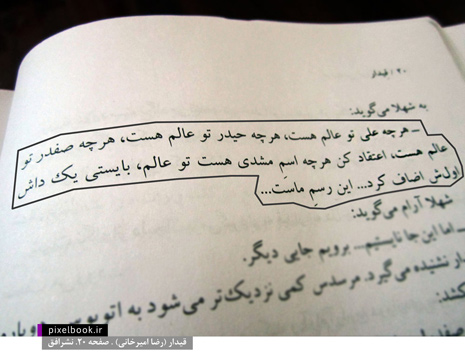 ۲۰ / قیدار
به شهلا می‌گوید:
ـ هرچه علی تو عالم هست، هرچه حیدر تو عالم هست، هرچه صفدر تو
عالم هست، اعتقاد کن هرچه اسم مشدی هست تو عالم، بایستی یک داش
اولش اضاف کرد... این رسمِ ماست...
شهلا آرام می‌گوید:
ـ اما این جا نایستیم... برویم جایی دیگر.
نشنیده می‌گیرد. مرسدس کمی نزدیک‌تر می‌شود به اتوبوس
کند:
pixelbook.ir
قیدار (رضا امیرخانی) . صفحه ۲۰. نشرافق